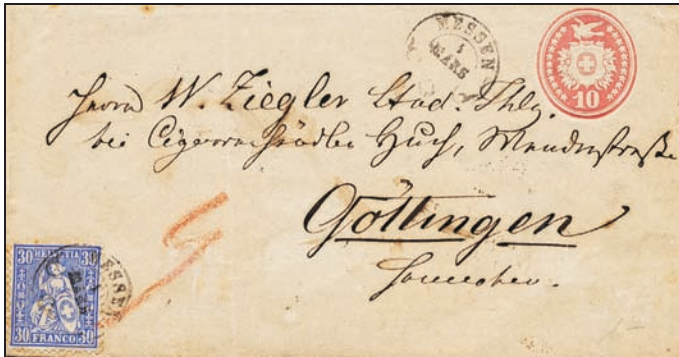 MESSEN
1
MARS
10
Herrn W. Ziegler Stud. Thlg.
bei Cigarrenhändler Huch, Weenderstraße
Göttingen
Hannover.
30 HELVETIA 30
MESSEN
MARS
30 FRANCO 30